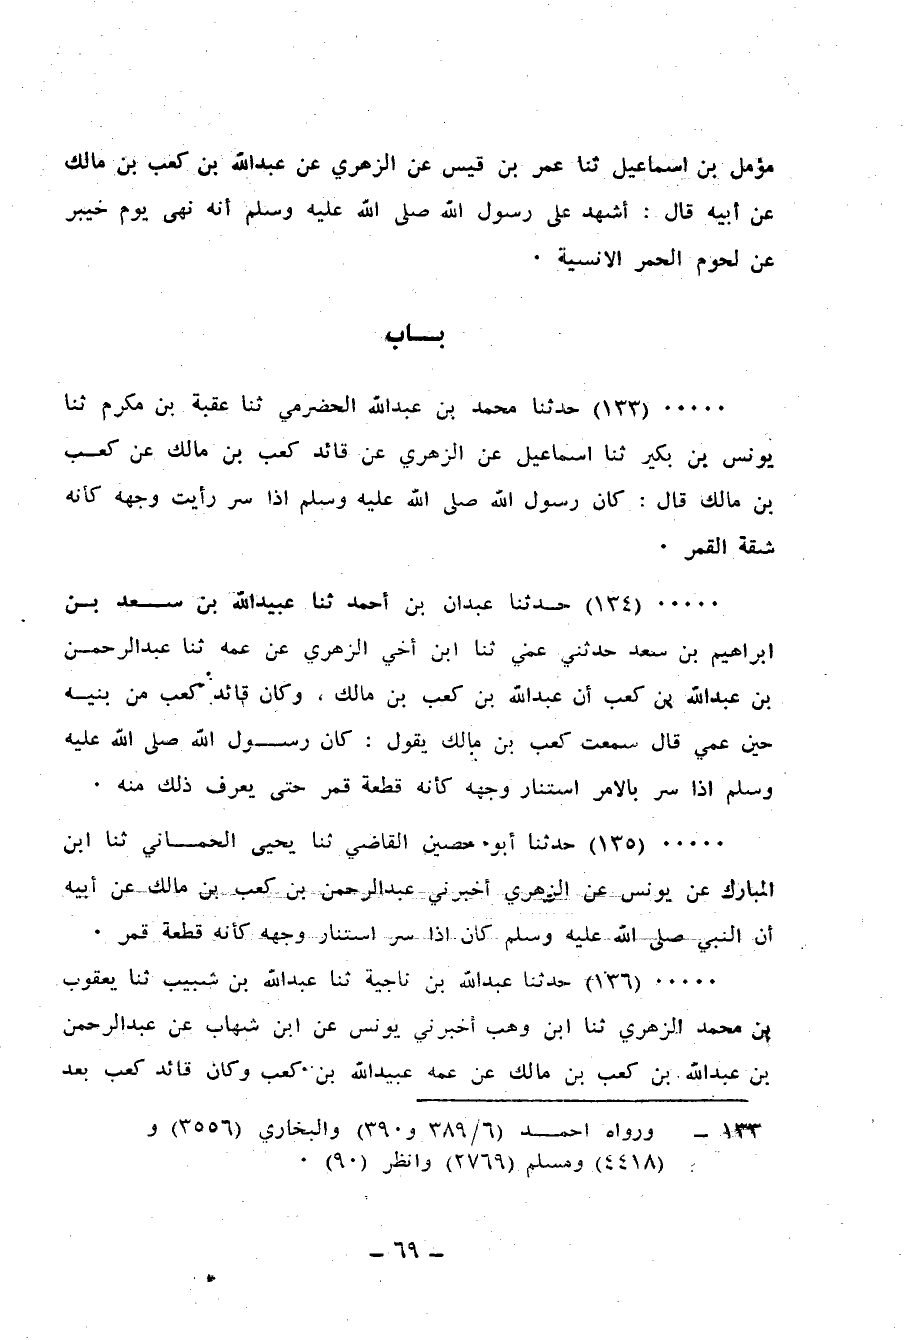 مؤمل بن اسماعيل ثنا عمر بن قيس عن الزهري عن عبدالله بن كعب بن مالك
عن أبيه قال : أشهد على رسول الله صلى الله عليه وسلم أنه نهى يوم خيبر
عن لحوم الحمر الانسية ٠
بـــاب
٠٠٠٠٠ (١٣٣) حدثنا محمد بن عبدالله الحضرمي ثنا عقبة بن مكرم ثنا
يونس بن بكير ثنا اسماعيل عن الزهري عن قائد كعب بن مالك عن كعـب
بن مالك قال : كان رسول الله صلى الله عليه وسلم اذا سر رأيت وجهه كأنه
شقة القمر ٠
٠٠٠٠٠ (١٣٤) حـدثنا عبدان بن أحمد ثنا عبيدالله بن ســعد بـن
ابراهيم بن سعد حدثني عمي ثنا ابن أخي الزهري عن عمه ثنا عبدالرحمـن
بن عبدالله بن كعب أن عبدالله بن كعب بن مالك ، وكان قائد كعب من بنيـه
حين عمي قال سمعت كعب بن مالك يقول : كان رســول الله صلى الله عليه
وسلم اذا سر بالامر استنار وجهه كأنه قطعة قمر حتى يعرف ذلك منه ٠
٠٠٠٠٠ (١٣٥) حدثنا أبو حصين القاضي ثنا يحيى الحمــاني ثنا ابن
المبارك عن يونس عن الزهري أخبرني عبدالرحمن بن كعب بن مالك عن أبيه
أن النبي صلى الله عليه وسلم كان اذا سر استنار وجهه كأنه قطعة قمر ٠
٠٠٠٠٠ (١٣٦) حدثنا عبدالله بن ناجية ثنا عبدالله بن شبيب ثنا يعقوب
بن محمد الزهري ثنا ابن وهب أخبرني يونس عن ابن شهاب عن عبدالرحمن
بن عبدالله بن كعب بن مالك عن عمه عبيدالله بن كعب وكان قائد كعب بعد
١٣٣ ـ ورواه احمــد (٣٨٩/٦ و٣٩٠) والبخاري (٣٥٥٦) و
(٤٤١٨) ومسلم (٢٧٦٩) وانظر (٩٠) ٠
ـ ٦٩ ـ